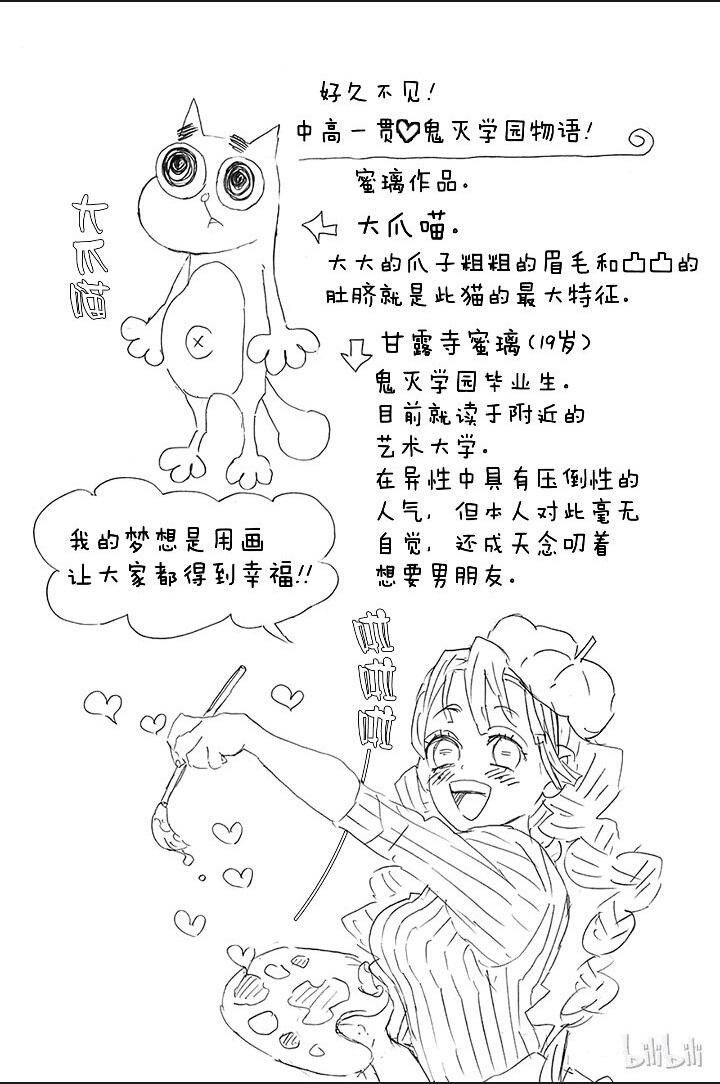 好久不见!
中高一贯♡鬼灭学园物语!
蜜璃作品。
大爪喵。
大大的爪子粗粗的眉毛和凸凸的
肚脐就是此猫的最大特征。
大爪猫
甘露寺蜜璃(19岁)
鬼灭学园毕业生。
目前就读于附近的
艺术大学。
在异性中具有压倒性的
人气,但本人对此毫无
自觉,还成天念叨着
想要男朋友。
我的梦想是用画
让大家都得到幸福!!
bilibili